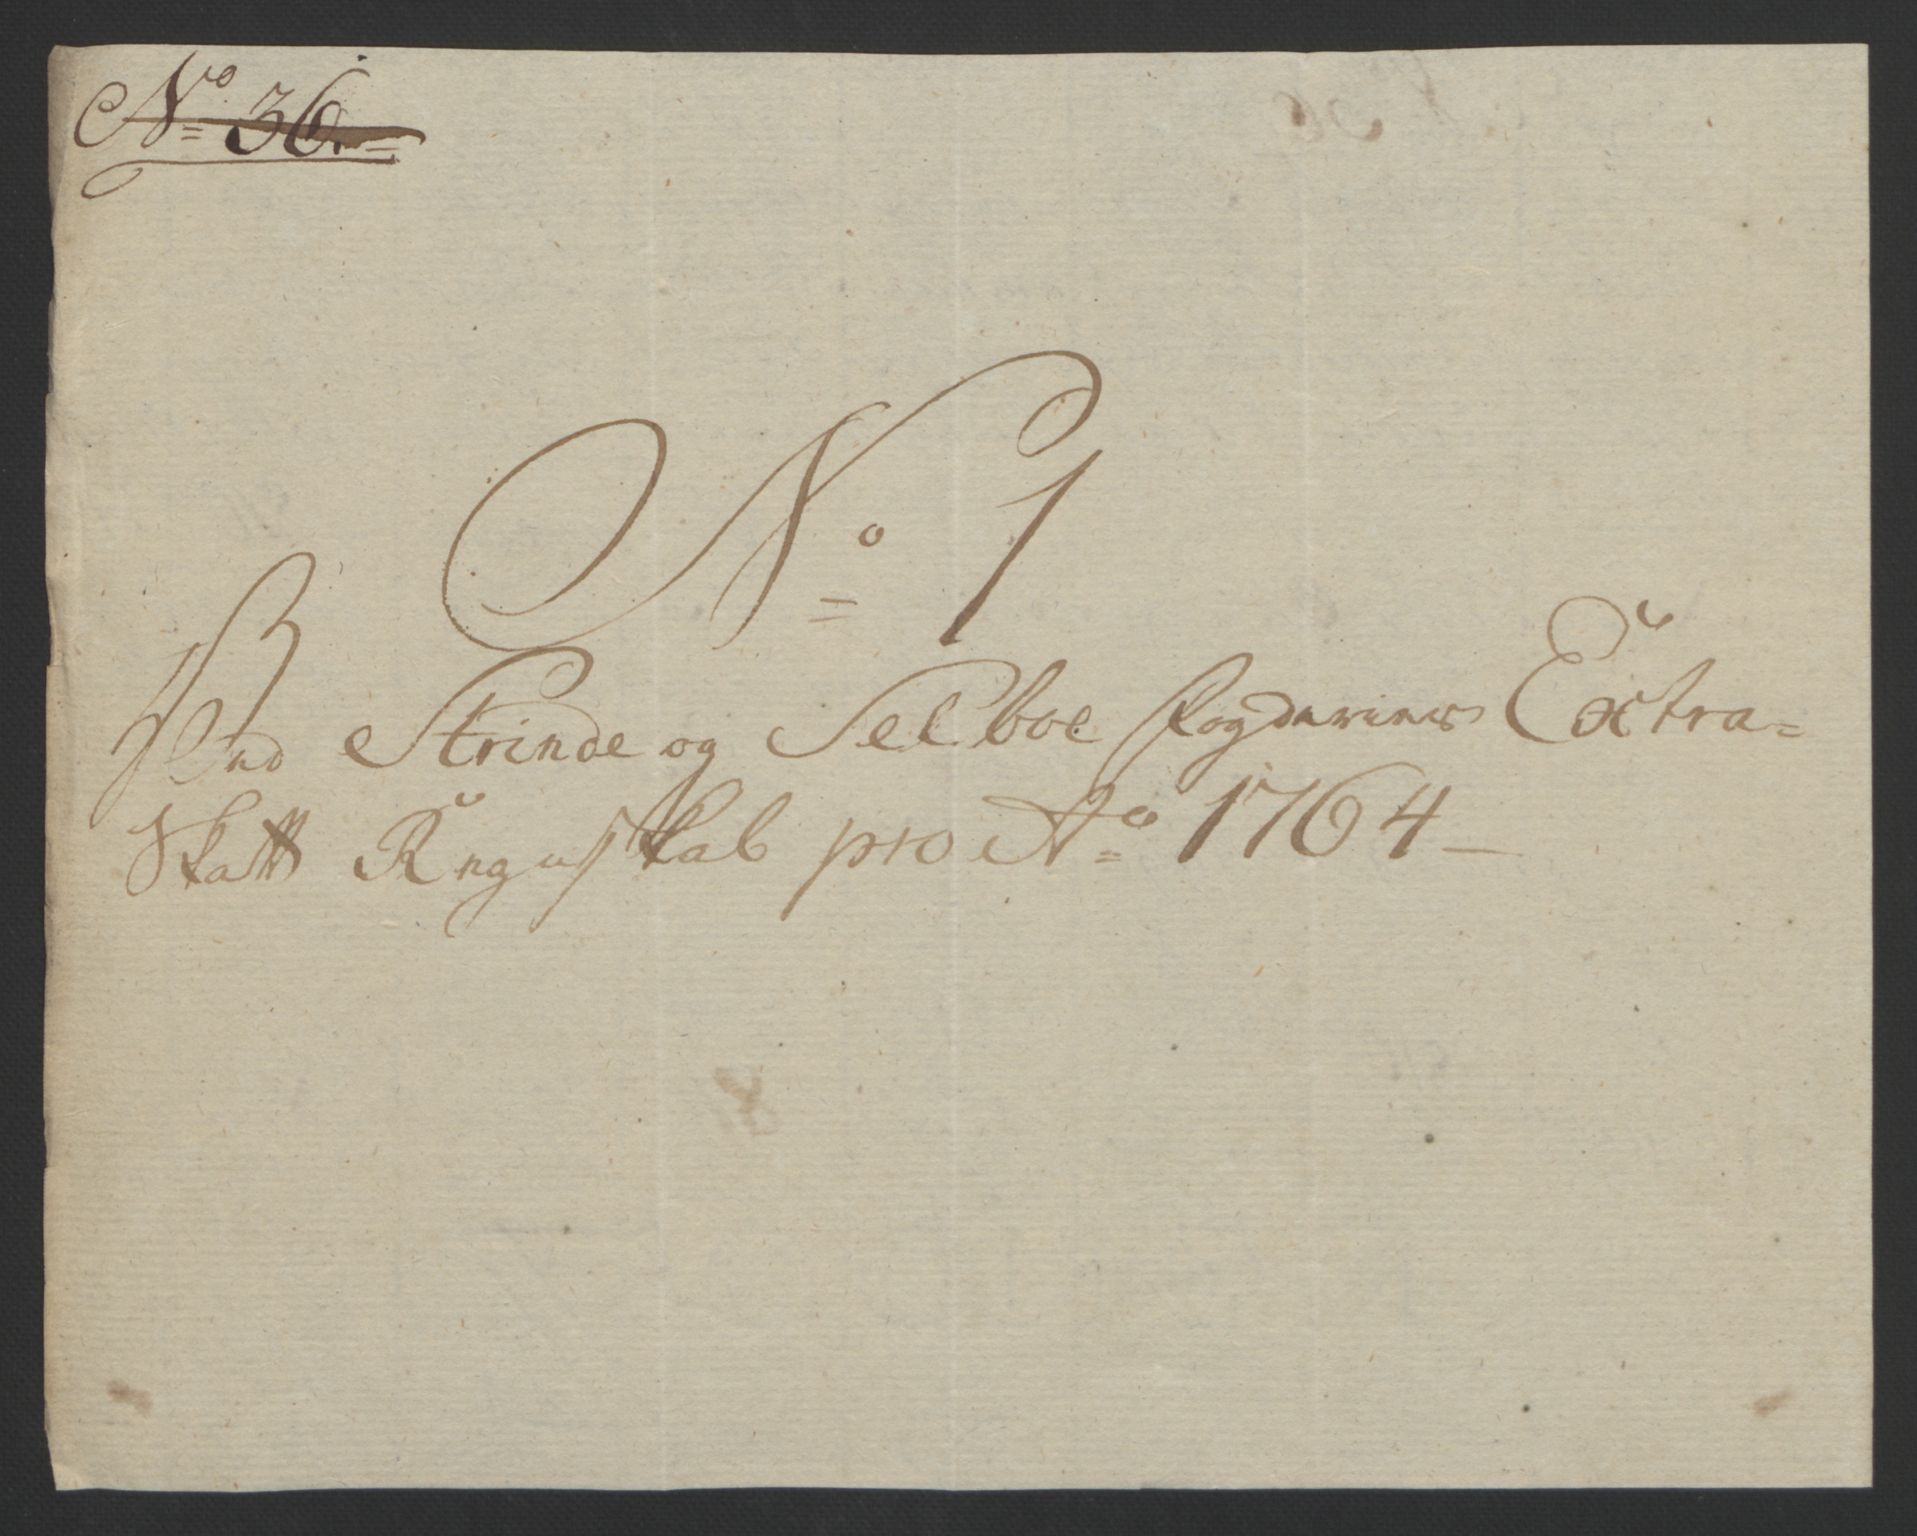 No 36.
No 1
Ved Strinde og Selboe Fogderiers Extra=
Skatt Regnskab pro Ao 1764